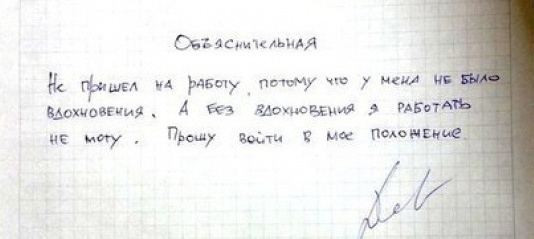 Объяснительная
Не пришел на работу, потому что у меня не было
вдохновения. А без вдохновения я работать
не могу. Прошу войти в мое положение